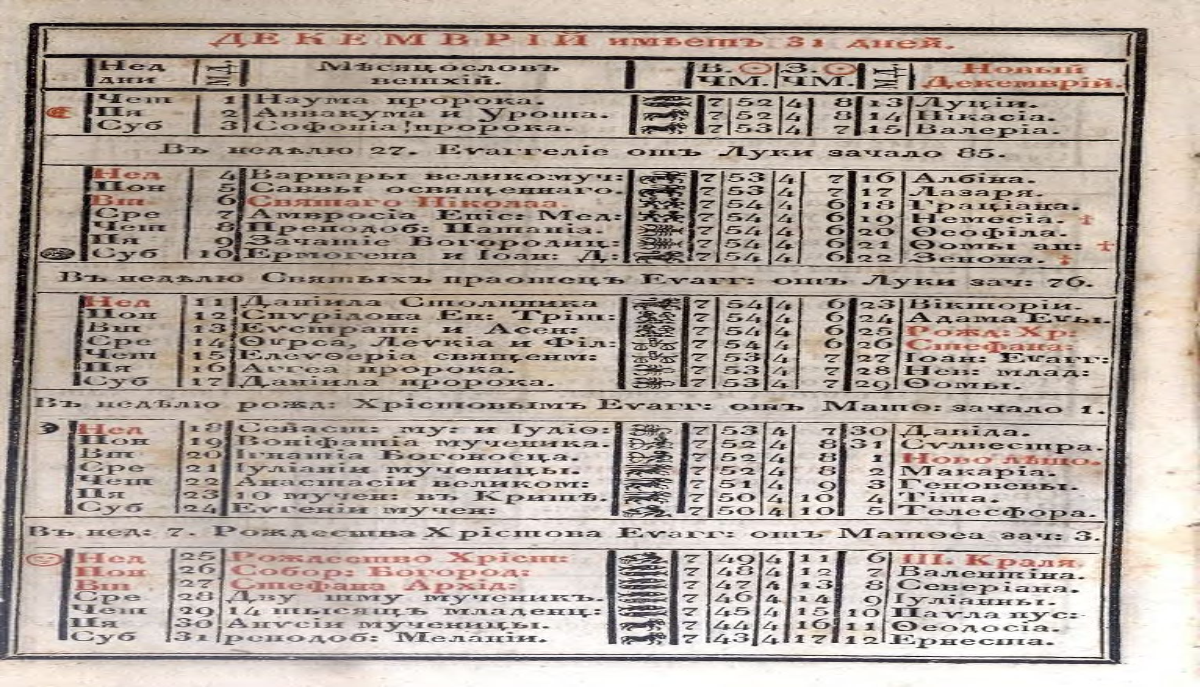 ДЕКЕМВРІЙ имѣетъ 31 дней.
Нед дни М.Д. Мѣсяцословъ ветхій. В. ЧМ. З. ЧМ. М.Д. Новый Декемврій.
Чет 1 Наума пророка. 7 52 4 8 13 Луціи.
Пя 2 Аввакума и Уроша. 7 52 4 8 14 Нікасіа.
Суб 3 Софоніа пророка. 7 53 4 7 15 Валеріа.
Въ недѣлю 27. Еѵаггеліе отъ Луки зачало 85.
Нед 4 Варвары великомуч: 7 53 4 7 16 Албіна.
Пон 5 Саввы освященнаго. 7 53 4 7 17 Лазаря.
Вт 6 Святаго Ніколаа. 7 54 4 6 18 Граціана.
Сре 7 Амвросіа Епіс: Мед: 7 54 4 6 19 Немесіа. †
Чет 8 Преподоб: Патапіа. 7 54 4 6 20 Ѳеофіла.
Пя 9 Зачатіе Богородиц: 7 54 4 6 21 Ѳомы ап: †
Суб 10 Ермогена и Іоан: Д: 7 54 4 6 22 Зенона. †
Въ недѣлю Святыхъ праотецъ Еѵагг: отъ Луки зач: 76.
Нед 11 Даніила Столпника 7 54 4 6 23 Вікторіи.
Пон 12 Спѵрідона Еп: Тріт: 7 54 4 6 24 Адама Еѵы.
Вт 13 Еѵстрат: и Аѯен: 7 54 4 6 25 Рожд: Хр:
Сре 14 Ѳѵрса, Леѵкіа и Філ: 7 54 4 6 26 Стефана:
Чет 15 Елеѵѳеріа священм: 7 53 4 7 27 Іоан: Еѵагг:
Пя 16 Аггеа пророка. 7 53 4 7 28 Нев: млад:
Суб 17 Даніила пророка. 7 53 4 7 29 Ѳомы.
Въ недѣлю рожд: Хрістовымъ Еѵагг: отъ Матѳ: зачало 1.
Нед 18 Севаст: му: и Іуліѳ: 7 53 4 7 30 Давіда.
Пон 19 Воніфатіа мученика. 7 52 4 8 31 Сѵлвестра.
Вт 20 Ігнатіа Богоносца. 7 52 4 8 1 Ново лѣто.
Сре 21 Іуліаніи мученицы. 7 52 4 8 2 Макаріа.
Чет 22 Анастасіи великом: 7 51 4 9 3 Геновевы.
Пя 23 10 мучен: въ Критѣ. 7 50 4 10 4 Тіта.
Суб 24 Еѵгеніи мучен: 7 50 4 10 5 Телесфора.
Въ нед: 7. Рождества Хрістова Еѵагг: отъ Матѳеа зач: 3.
Нед 25 Рождество Хріст: 7 49 4 11 6 III. Краля
Пон 26 Собор: Богород: 7 48 4 12 7 Валентіна.
Вт 27 Стефана Архід: 7 47 4 13 8 Северіана.
Сре 28 Дву тму мученикъ. 7 46 4 14 9 Іуліанны.
Чет 29 14 тысящъ младенц: 7 45 4 15 10 Паѵла пус:
Пя 30 Анѵсіи мученицы. 7 44 4 16 11 Ѳеодосіа.
Суб 31 реподоб: Меланіи. 7 43 4 17 12 Ернеста.